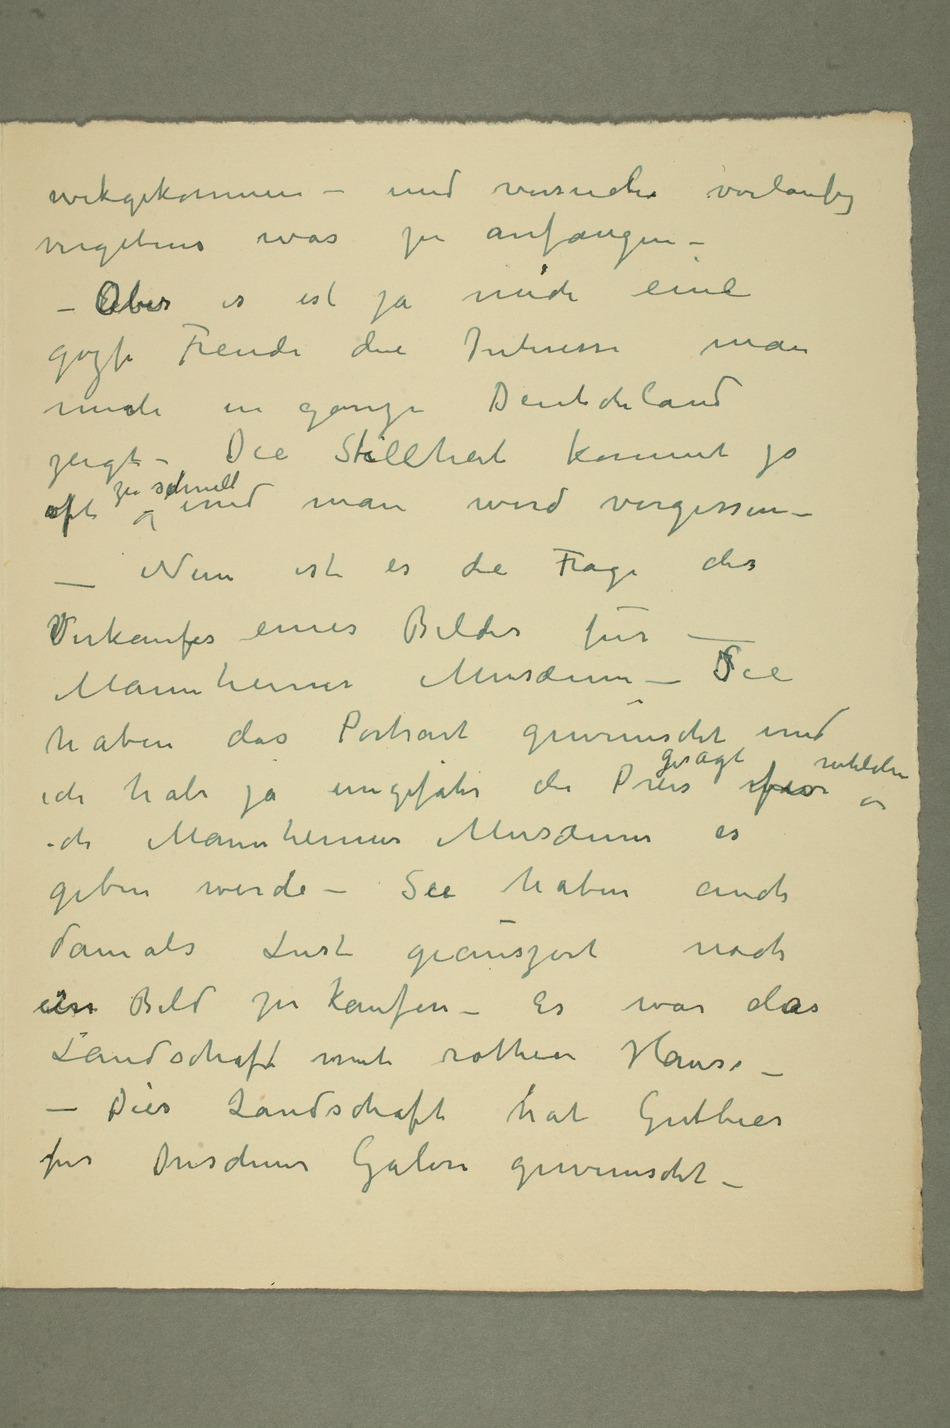 wekgekommen – und versuche vorlaufig
vergebens was zu anfangen –
– Aber es ist ja mich eine
gozse Freude die Interesse man
mich in ganze Deutchland
zeigt – Die Stillheit kommt ja
oft zu schnell und man wird vergessen –
– Nun ist es die Frage des
Verkaufes eines Bildes fur –
Mannheimer Musæum – Sie
haben das Portrait gewunscht und
ich habe ja ungefahr die Preis gesagt welche
ich Mannheimer Musæum es
geben werde – Sie haben auch
damals Lust geauszert noch
ein Bild zu kaufen – Es war das
Landschaft mit rothen Hause –
– Dies Landschaft hat Gutbier
fur Dresdener Galeri gewunscht –